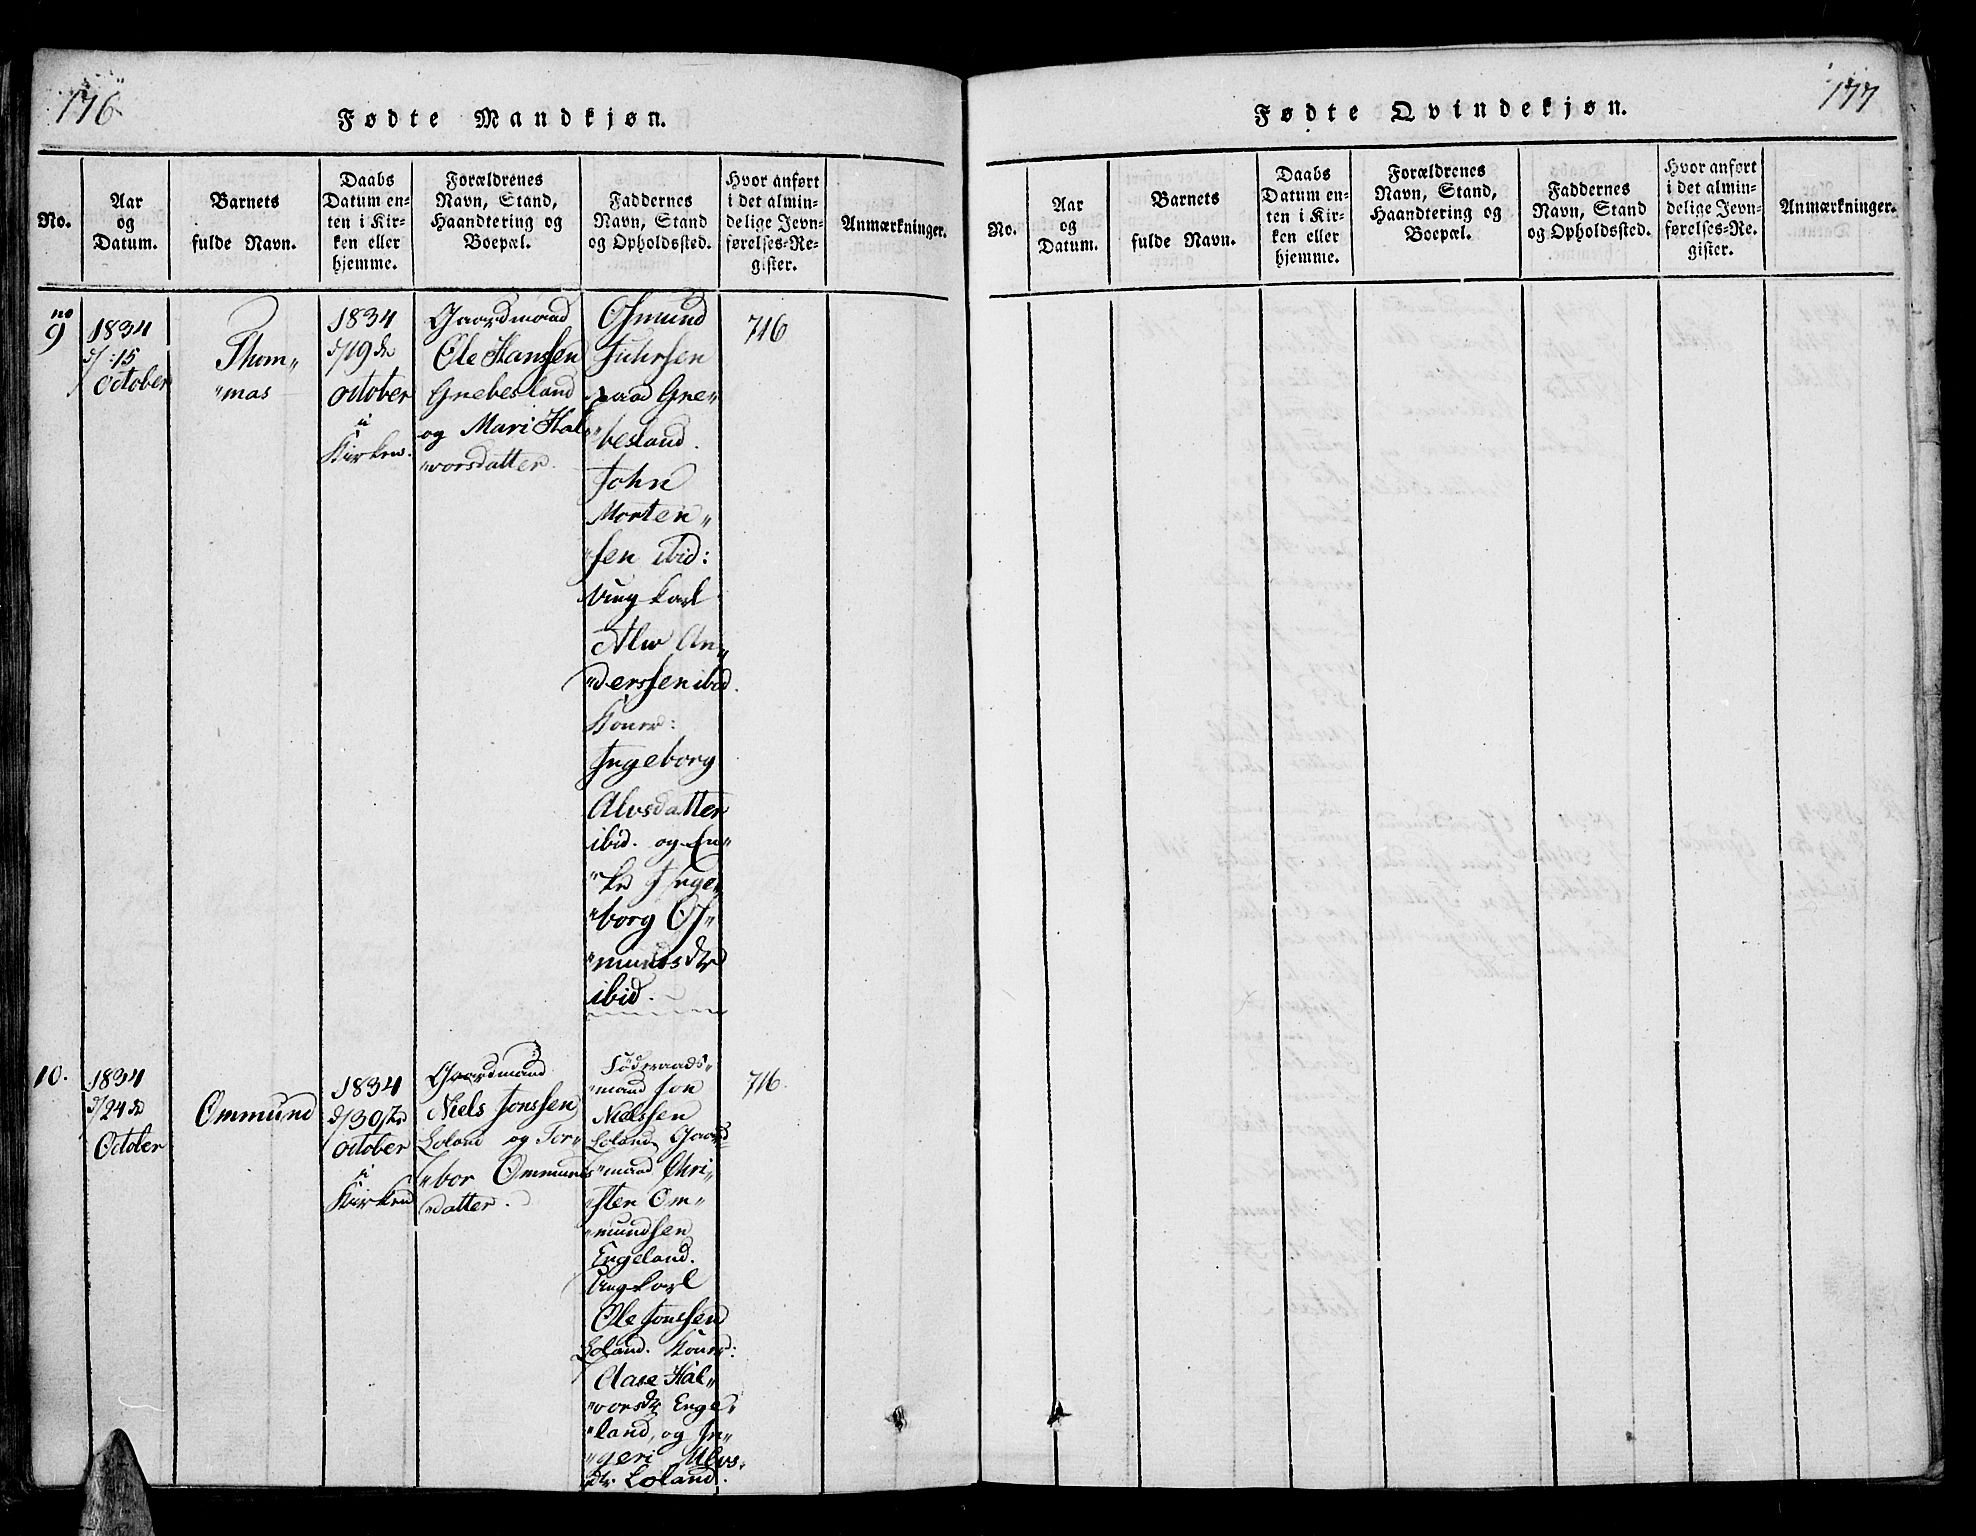 176
Fødte Mandkjøn.
No.
Aar
og
Datum.
Barnets
fulde Navn.
Daabs
Datum en-
ten i Kir-
ken eller
hjemme.
Forældrenes
Navn, Stand,
Haandtering og
Boepæl.
Faddernes
Navn, Stand
og Opholdssted.
Hvor anført
i det almin-
delige Jevn-
førelses-Re-
gister.
Anmærkninger.
no
9
1834
d/:15
October
Thom„
„mas
1834
d/19de
October
i
Kirken.
Gaardmand
Ole Hanssen
Grebesland
og Mari Hal„
„vorsdatter.
Osmund
paa Gre„
„besland.
John
Morten„
„sen ibid:
Ungkarl
Alv An„
„derssen ibid.
Koner:
Ingeborg
Alvsdatter
ibid. og En„
„ke Inge„
„borg Os„
„munds dtr
ibid.
716
10.
1834
d/24de
October
Ommund
1834
d/30te
October
i
Kirken
Gaardmand
Niels Jonssen
Loland og Tor„
„bor Ommunds
datter.
Föderaads„
„mand Jon
Nielssen
Loland, Gaard
„mand Chri„
„sten Om„
„mundsen
Engeland.
Ungkarl
Ole Jonssen
Loland. Koner:
Aase Hal„
„vorsdtr Enge„
„land, og In„
„geri Alvs„
dtr. Loland.
716.
177
Fødte Qvindekjøn.
No.
Aar
og
Datum.
Barnets
fulde Navn.
Daabs
Datum en-
ten i Kir-
ken eller
hjemme.
Forældrenes
Navn, Stand,
Haandtering og
Boepæl.
Faddernes
Navn, Stand
og Opholdssted.
Hvor anført
i det almin-
delige Jevn-
førelses-Re-
gister.
Anmærkninger.